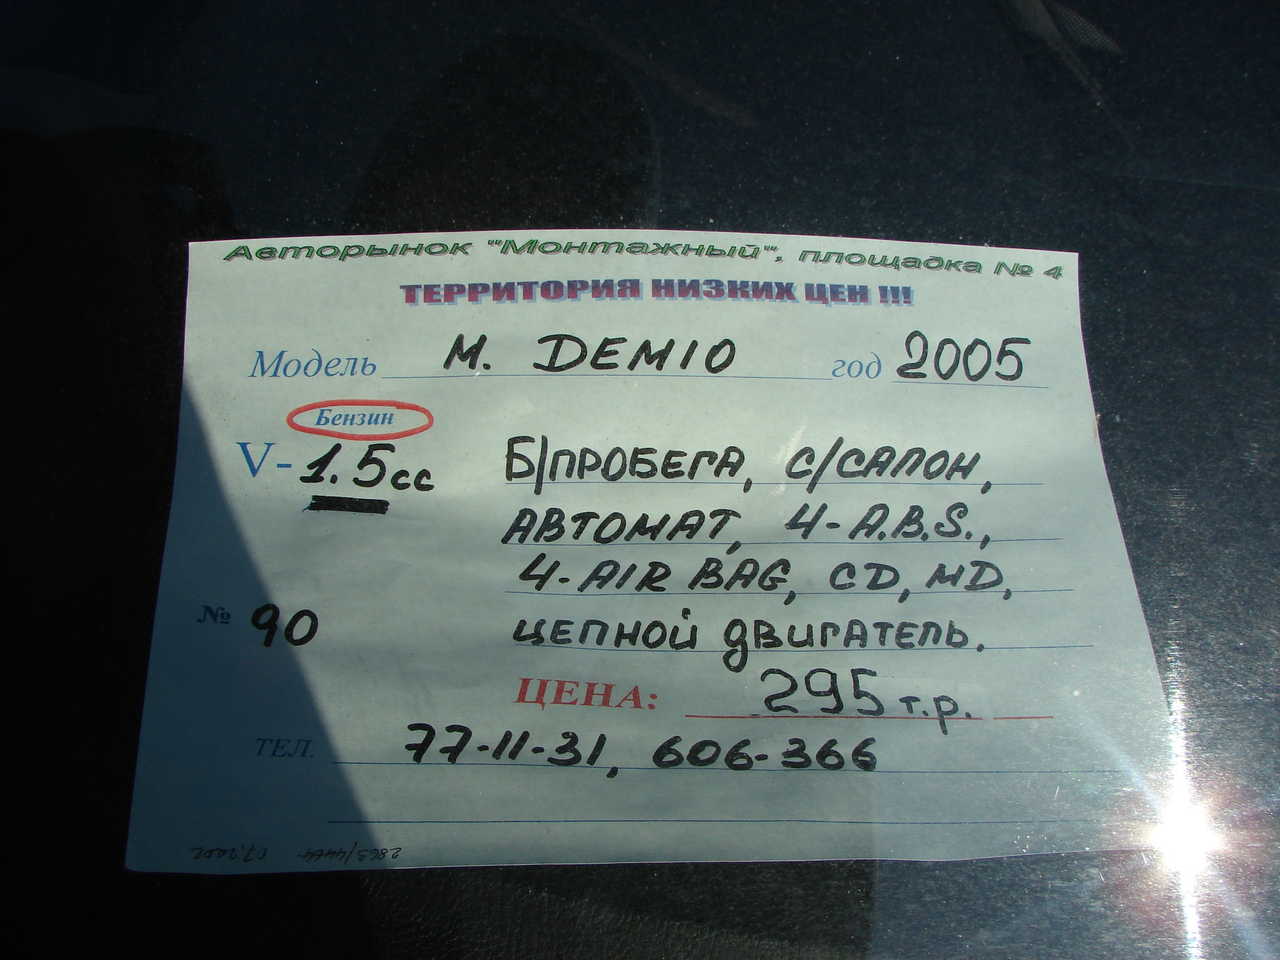 Авторынок "Монтажный", площадка № 4
ТЕРРИТОРИЯ НИЗКИХ ЦЕН !!!
Модель М. DEMIO год 2005
Бензин
V- 1.5 cc
Б/ПРОБЕГА, С/САЛОН,
АВТОМАТ, 4-A.B.S.,
4-AIR BAG, CD, MD,
№ 90
ЦЕПНОЙ ДВИГАТЕЛЬ.
ЦЕНА: 295 т.р.
ТЕЛ. 77-11-31, 606-366